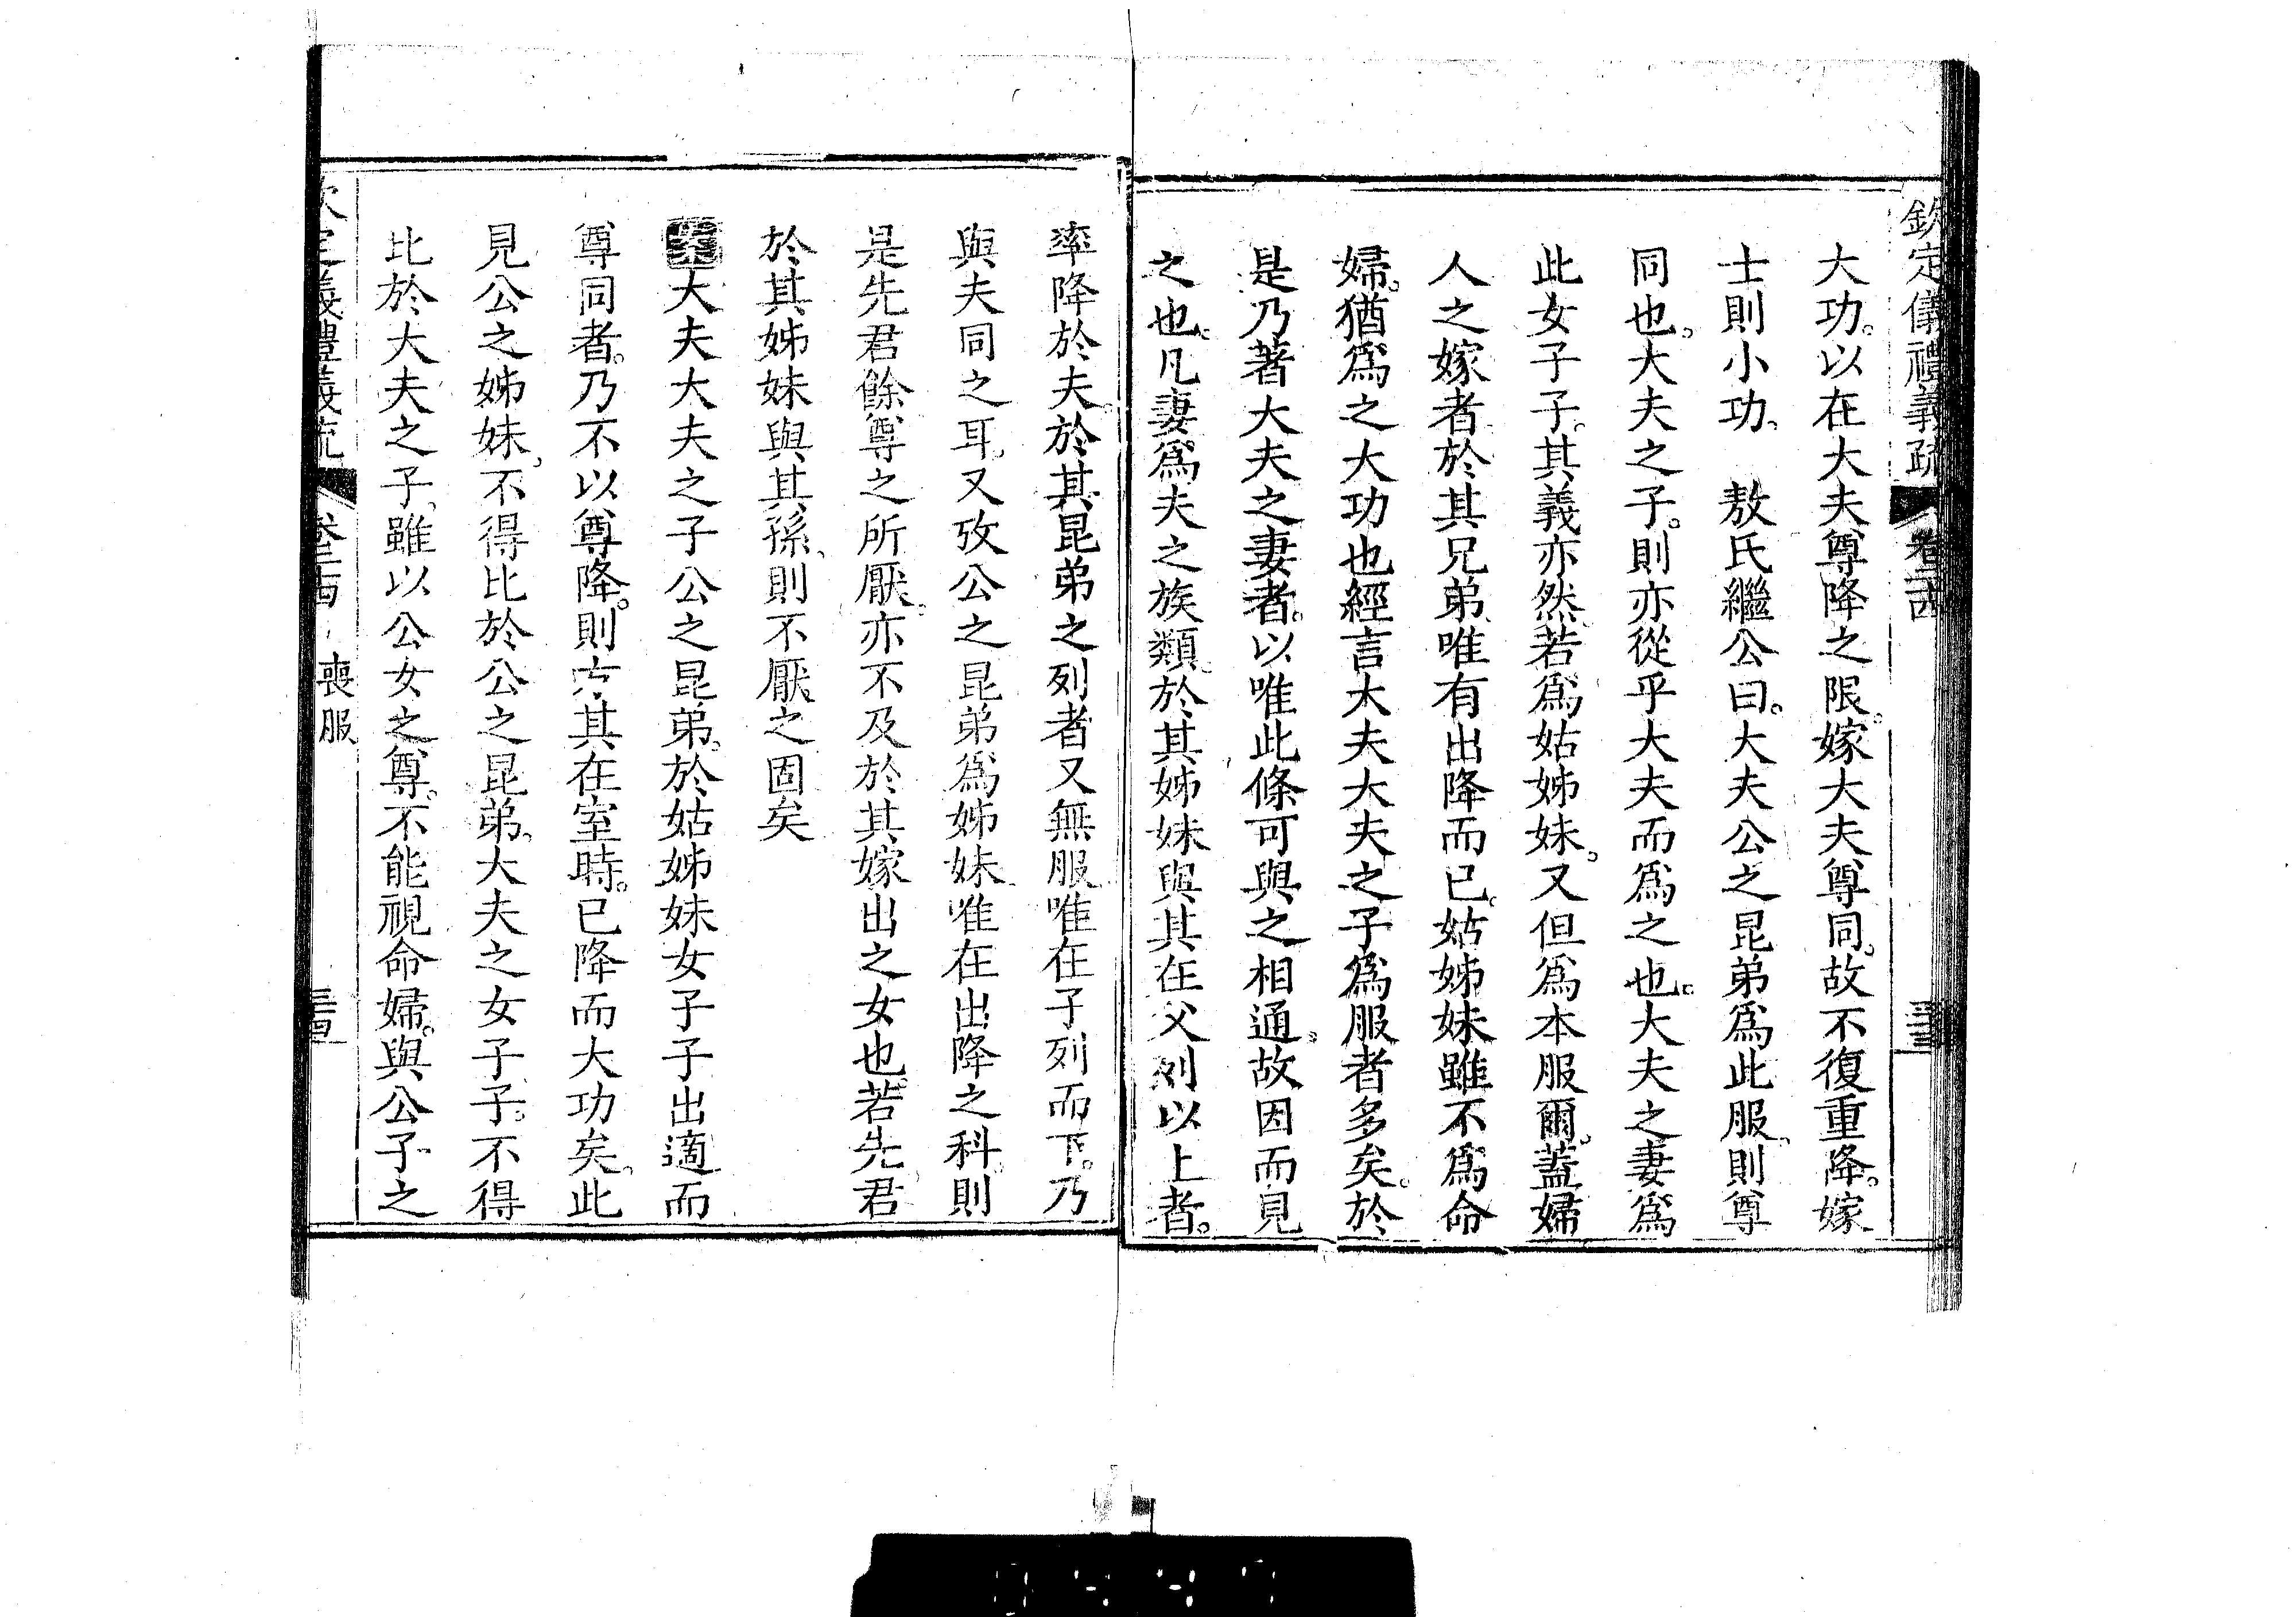 欽定儀禮義疏 卷二十四
大功。以在大夫尊降之限。嫁大夫尊同。故不復重降。嫁
士則小功。 敖氏繼公曰。大夫公之昆弟爲此服。則尊
同也。大夫之子。則亦從乎大夫而爲之也。大夫之妻爲
此女子子。其義亦然若爲姑姊妹。又但爲本服爾。蓋婦
人之嫁者於其兄弟。唯有出降而已。姑姊妹雖不爲命
婦。猶爲之大功也經言大夫大夫之子爲服者多矣。於
是乃著大夫之妻者。以唯此條可與之相通。故因而見
之也。凡妻爲夫之族類。於其姊妹與其在父列以上者。
率降於夫。於其昆弟之列者又無服唯在子列而下。乃
與夫同之耳。又攷公之昆弟爲姊妹唯在出降之科。則
是先君餘尊之所厭。亦不及於其嫁出之女也。若先君
於其姊妹與其孫、則不厭之固矣
案大夫大夫之子公之昆弟。於姑姊妹女子子出適而
尊同者。乃不以尊降。則其在室時。已降而大功矣。此
見公之姊妹。不得比於公之昆弟。大夫之女子子。不得
比於大夫之子。雖以公女之尊。不能視命婦。與公子之
定義禮義疏 喪服